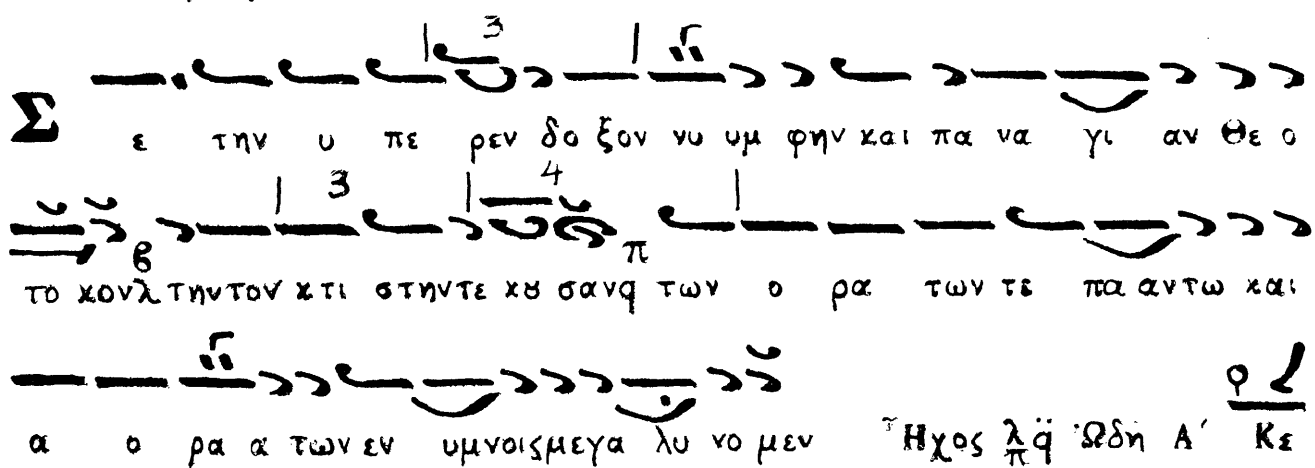 Σ ε την υ πε ρεν δο ξον νυ υμ φην και πα να γι αν Θε ο
το κον λ την τον κτι στην τε κȣ σαν q των ο ρα των τε πα αντω και
α ο ρα α των εν υμνοις μεγα λυ νο μεν Ἦχος λ π q̈ Ὠδη Α΄ Κε